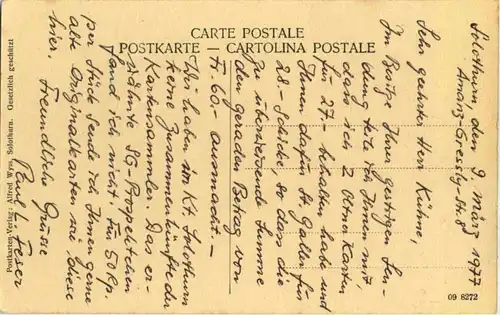 CARTE POSTALE
POSTKARTE – CARTOLINA POSTALE
Solothurn, den 9. März 1977
Amanz-Gressly-Str. 8
Sehr geehrter Herr Kühne,
Im Besitze Ihrer gestrigen Sen-
dung teile ich Ihnen mit,
dass ich 2 Oltner Karten
für 27.- behalten habe und
Ihnen dafür St. Galler für
28.- schicke, so dass die
zu überweisende Summe
den geraden Betrag von
Fr. 60.- ausmacht. –
Wir haben im Kt. Solothurn
keine Zusammenkünfte der
Kartensammler. Das er-
wähnte SG-Prospektchen
fand ich nicht. Für 50 Rp.
per Stück sende ich Ihnen gerne
alte Originalkarten wie diese
hier.
Freundliche Grüsse
Paul L. Feser
Postkarten-Verlag: Alfred Wyss, Solothurn. Gesetzlich geschützt
09 8272